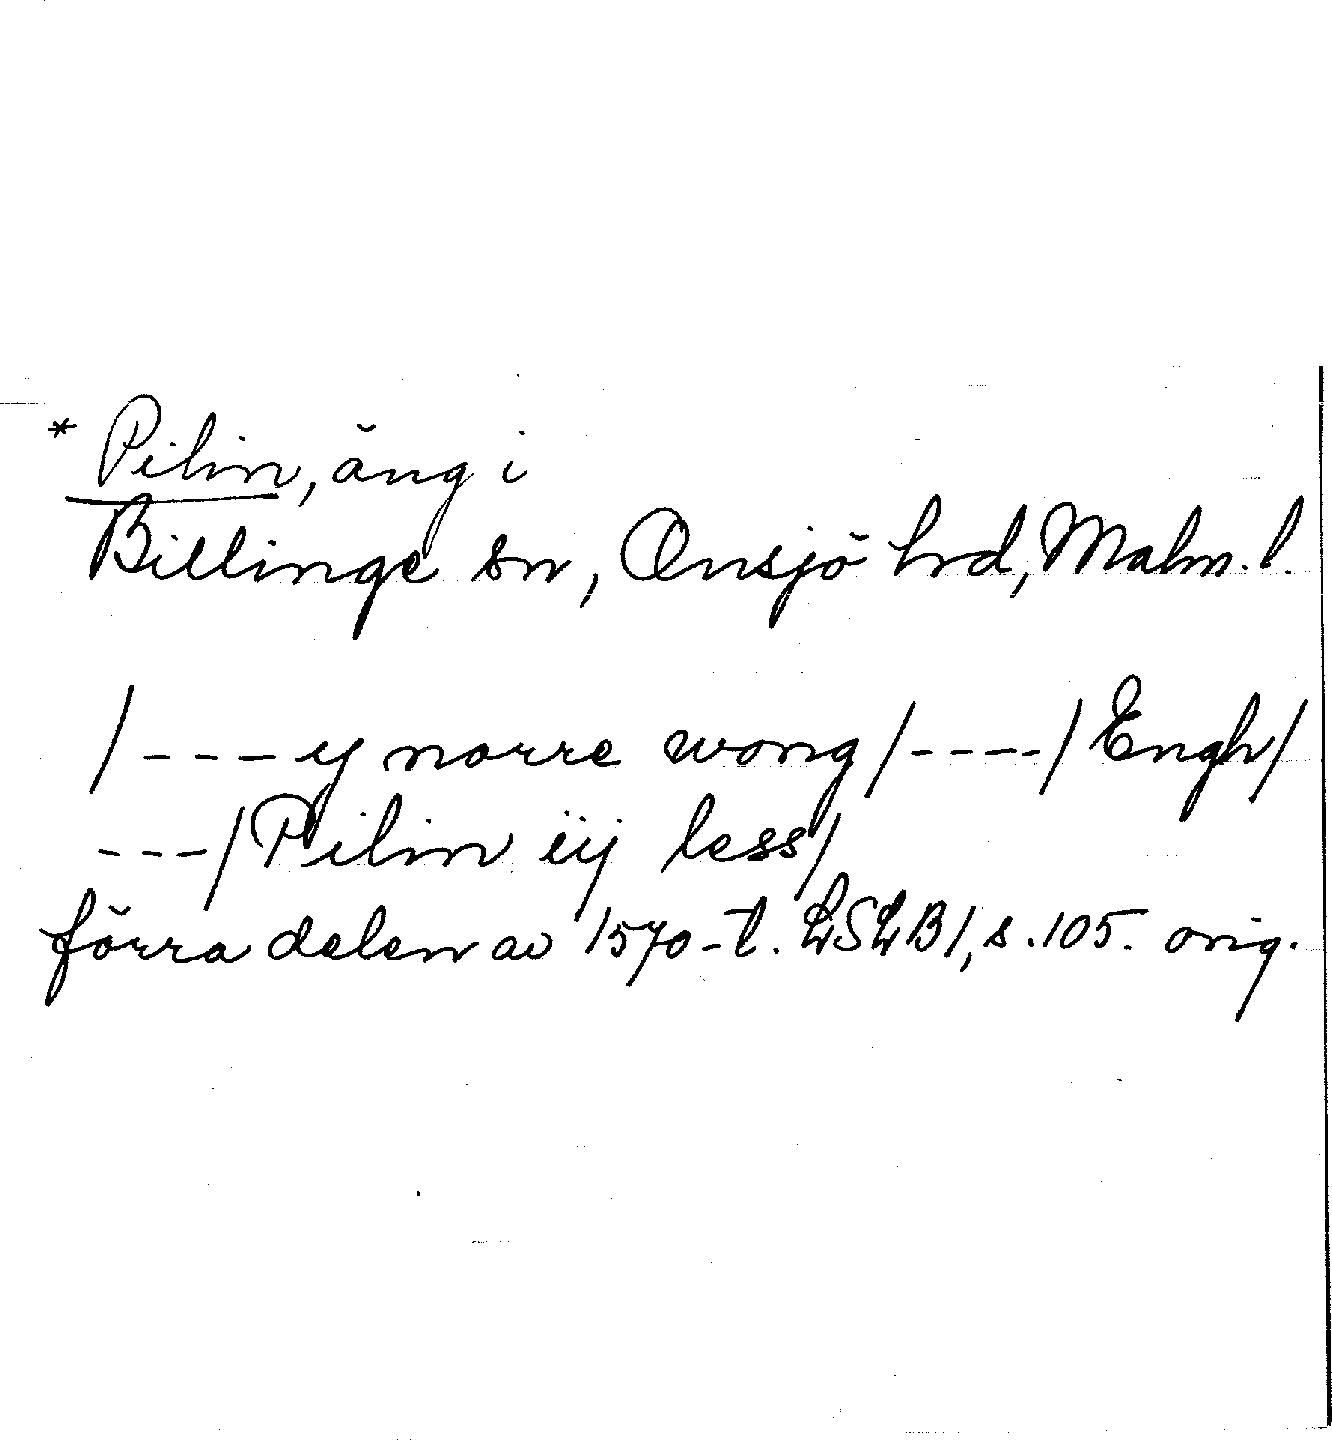 * Pilin, äng i
Billinge sn, Onsjö hrd, Malm. l.
/---- y norre wong/----/Engh/
---/Pilin iij less/
förra delen av 1570-t. LSLB1, s. 105. orig.